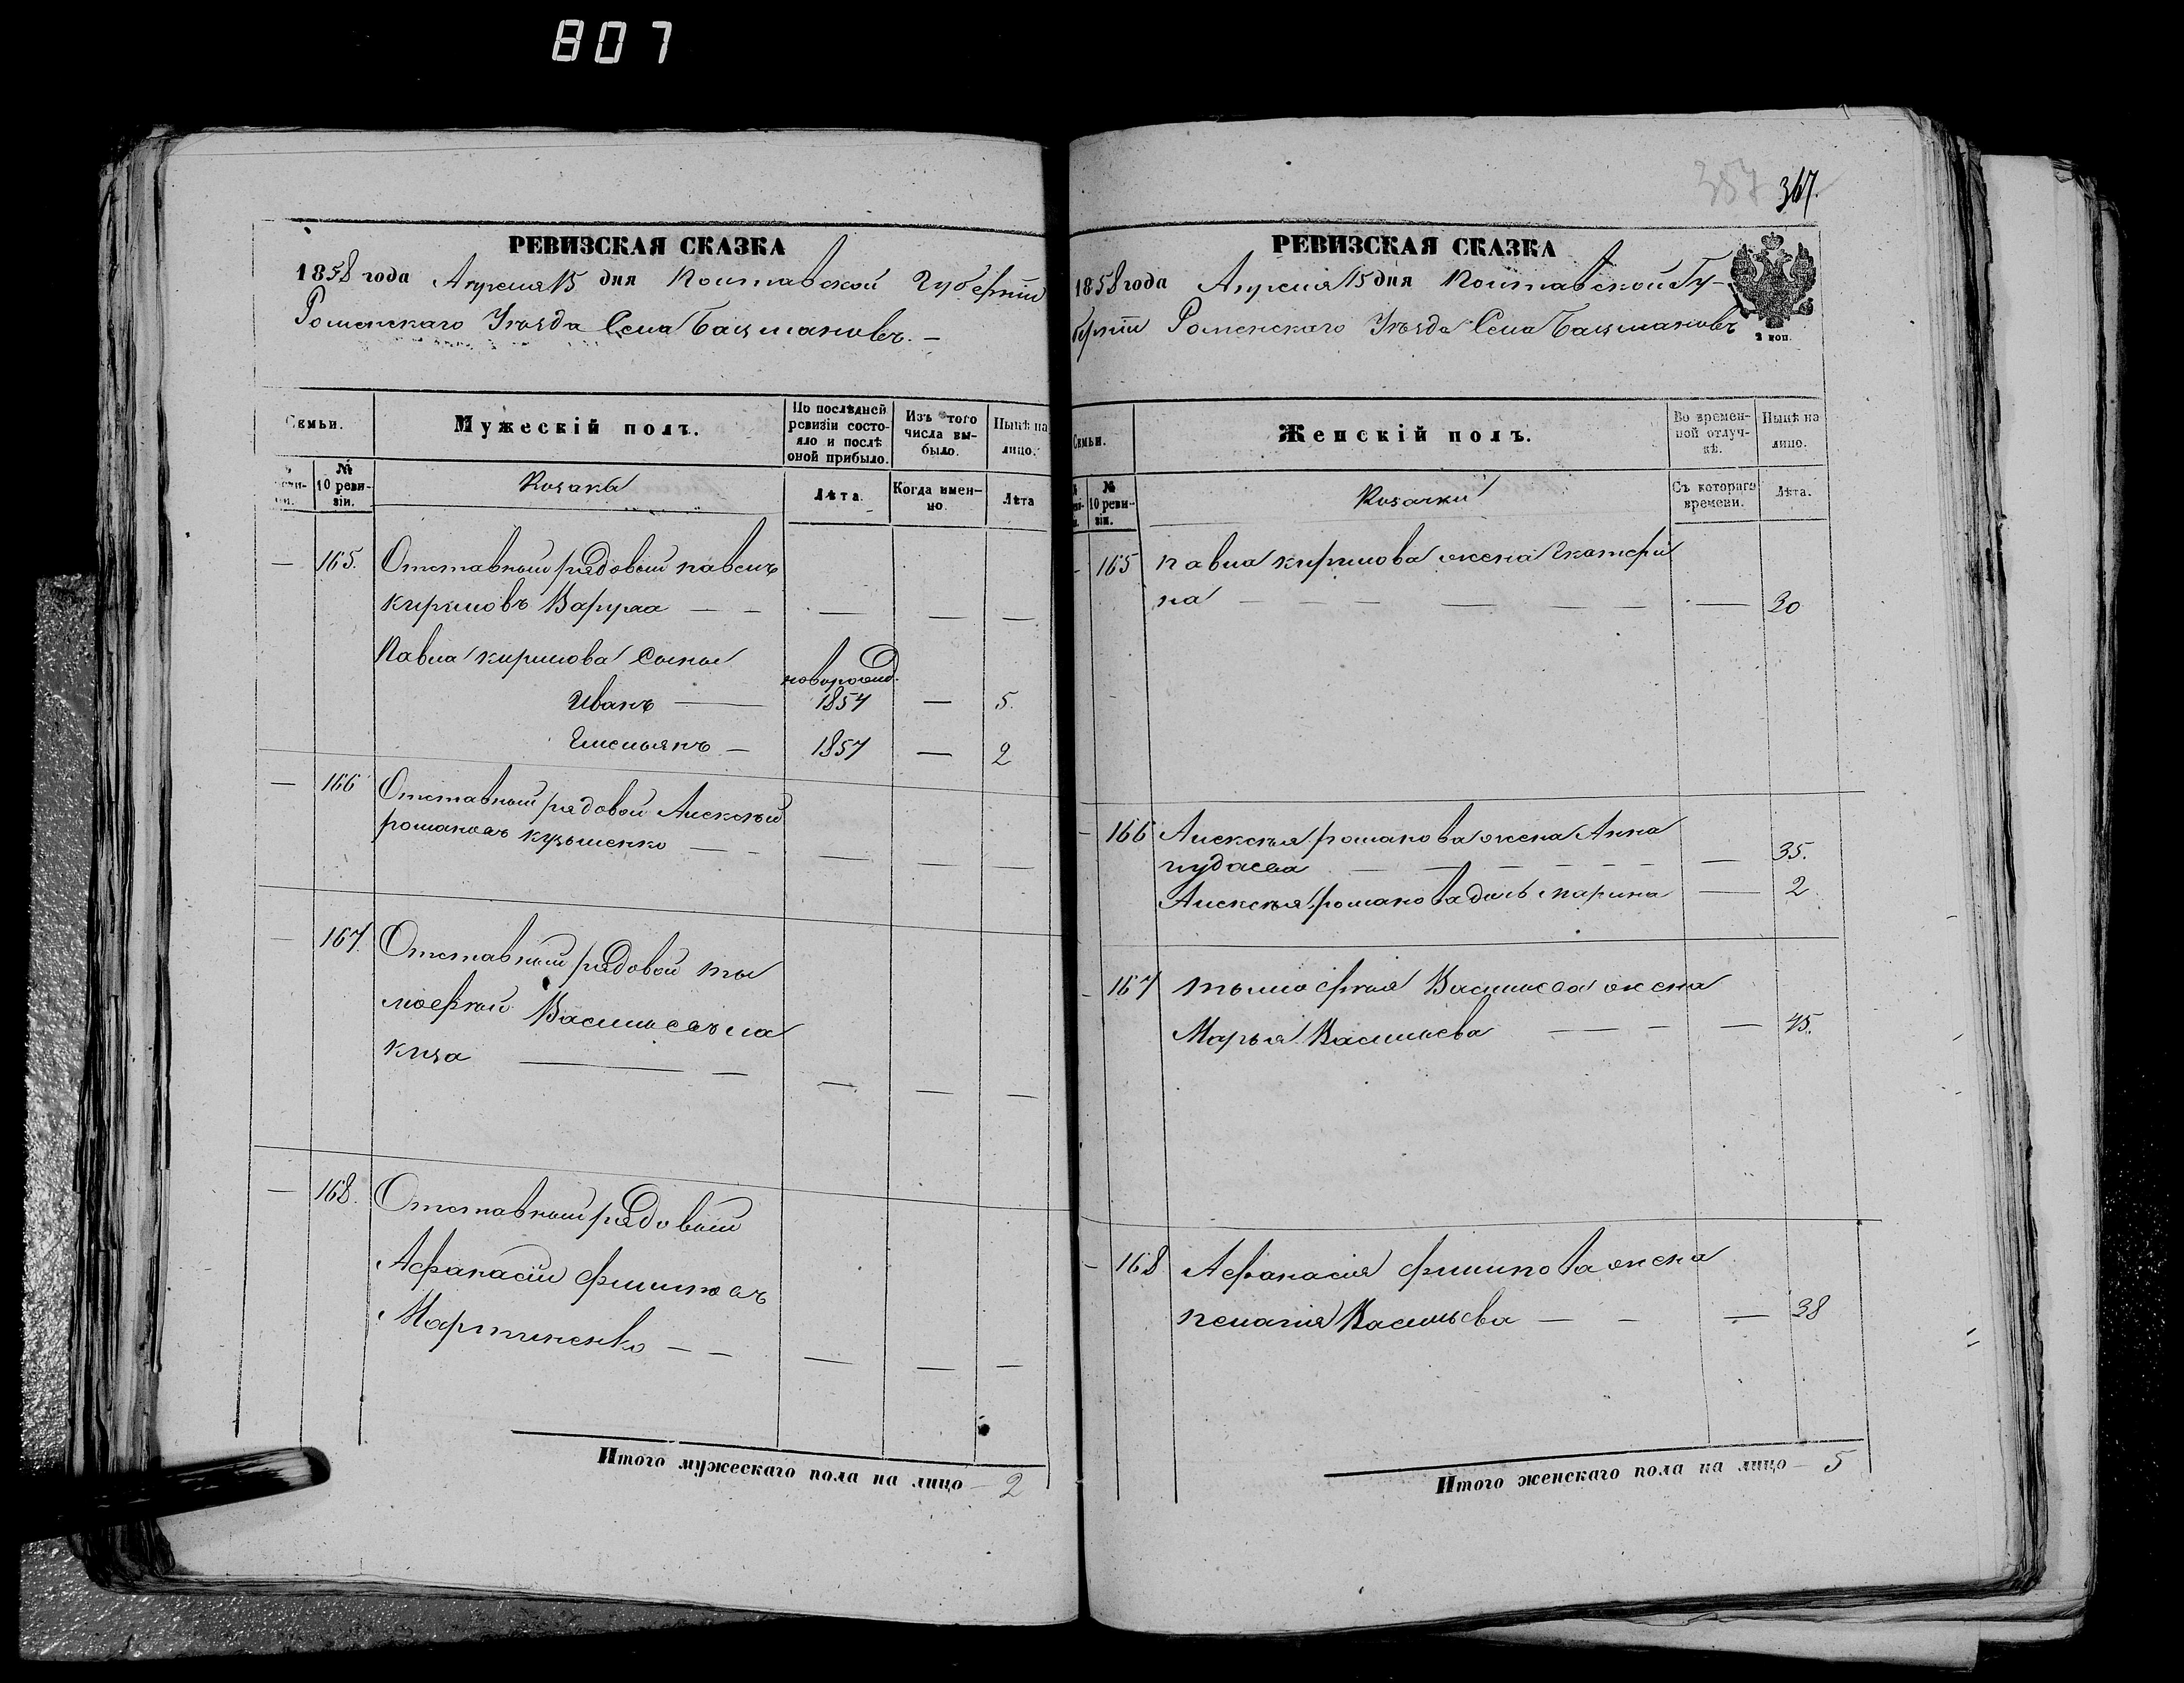 807
367.
357
РЕВИЗСКАЯ СКАЗКА
1858 года Апреля 15 дня Полтавской Губерніи
Роменскаго Уѣзда Села Бацмановъ. —
Семьи.
Мужескій полъ.
По послѣдней ревизіи состояло и послѣ оной прибыло.
Изъ того числа выбыло.
Нынѣ на лицо.
№ 10 ревизіи.
Козаки
Лѣта.
Когда именно.
Лѣта
— 165. Отставный рядовый павелъ
кириловъ Варула — — — — —
Павла кирилова Сыны
новорожд.
Иванъ — 1854 — 5.
Емельянъ — 1857 — 2
— 166 Отставный рядовой Алексѣй
романовъ кузьменко — — — — —
— 167. Отставный рядовой ты
мофѣй Васильевъ ла
куза — — — — —
— 168. Отставный рядовый
Афанасій филиповъ
Мартиненко — — — — —
Итого мужескаго пола на лицо — 2
РЕВИЗСКАЯ СКАЗКА
1858 года Апреля 15 дня Полтавской Гу-
берніи Роменскаго Уѣзда Села Бацмановъ
2 коп.
Семьи.
Женскій полъ.
Во временной отлучкѣ.
Нынѣ на лицо.
№ 10 ревизіи.
Козачки
Съ котораго времени.
Лѣта.
— 165 павла кирилова жена Екатери
на — — — — — — — 30
— 166 Алексѣя романова жена Анна
гудаева — — — — — — 35.
Алексѣя романова дочь марина — 2
— 167 тымофѣя Васильева жена
Марья Васильева — — — — 45.
— 168 Афанасия филипова жена
пелагия Васильева — — — 38
Итого женскаго пола на лицо — 5